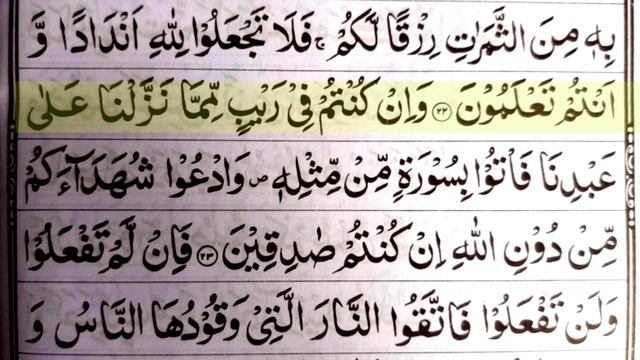 بِهٖ مِنَ الثَّمَرٰتِ رِزْقًا لَّكُمْ ۚ فَلَا تَجْعَلُوْا لِلّٰهِ اَنْدَادًا وَّ
اَنْتُمْ تَعْلَمُوْنَ ﴿۲۲﴾ وَاِنْ كُنْتُمْ فِیْ رَیْبٍ مِّمَّا نَزَّلْنَا عَلٰی
عَبْدِنَا فَاْتُوْا بِسُوْرَةٍ مِّنْ مِّثْلِهٖ ۪ وَادْعُوْا شُهَدَآءَكُمْ
مِّنْ دُوْنِ اللّٰهِ اِنْ كُنْتُمْ صٰدِقِیْنَ ﴿۲۳﴾ فَاِنْ لَّمْ تَفْعَلُوْا
وَلَنْ تَفْعَلُوْا فَاتَّقُوا النَّارَ الَّتِیْ وَقُوْدُهَا النَّاسُ وَ